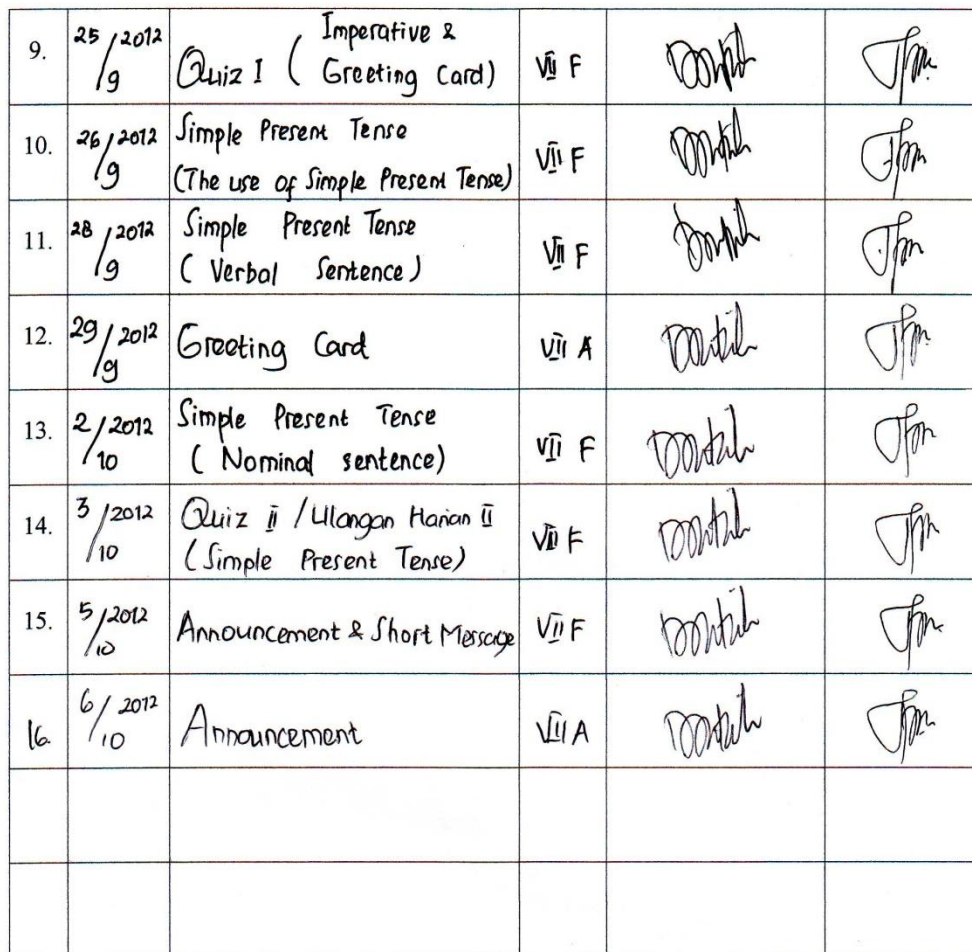 9. 25/9 2012 Quiz I ( Imperative & Greeting Card) VII F
10. 26/9 2012 Simple Present Tense
(The use of Simple Present Tense) VII F
11. 28/9 2012 Simple Present Tense
( Verbal Sentence ) VII F
12. 29/9 2012 Greeting Card VII A
13. 2/10 2012 Simple Present Tense
( Nominal sentence) VII F
14. 3/10 2012 Quiz II / Ulangan Harian II
(Simple Present Tense) VII F
15. 5/10 2012 Announcement & Short Message VII F
16. 6/10 2012 Announcement VII A